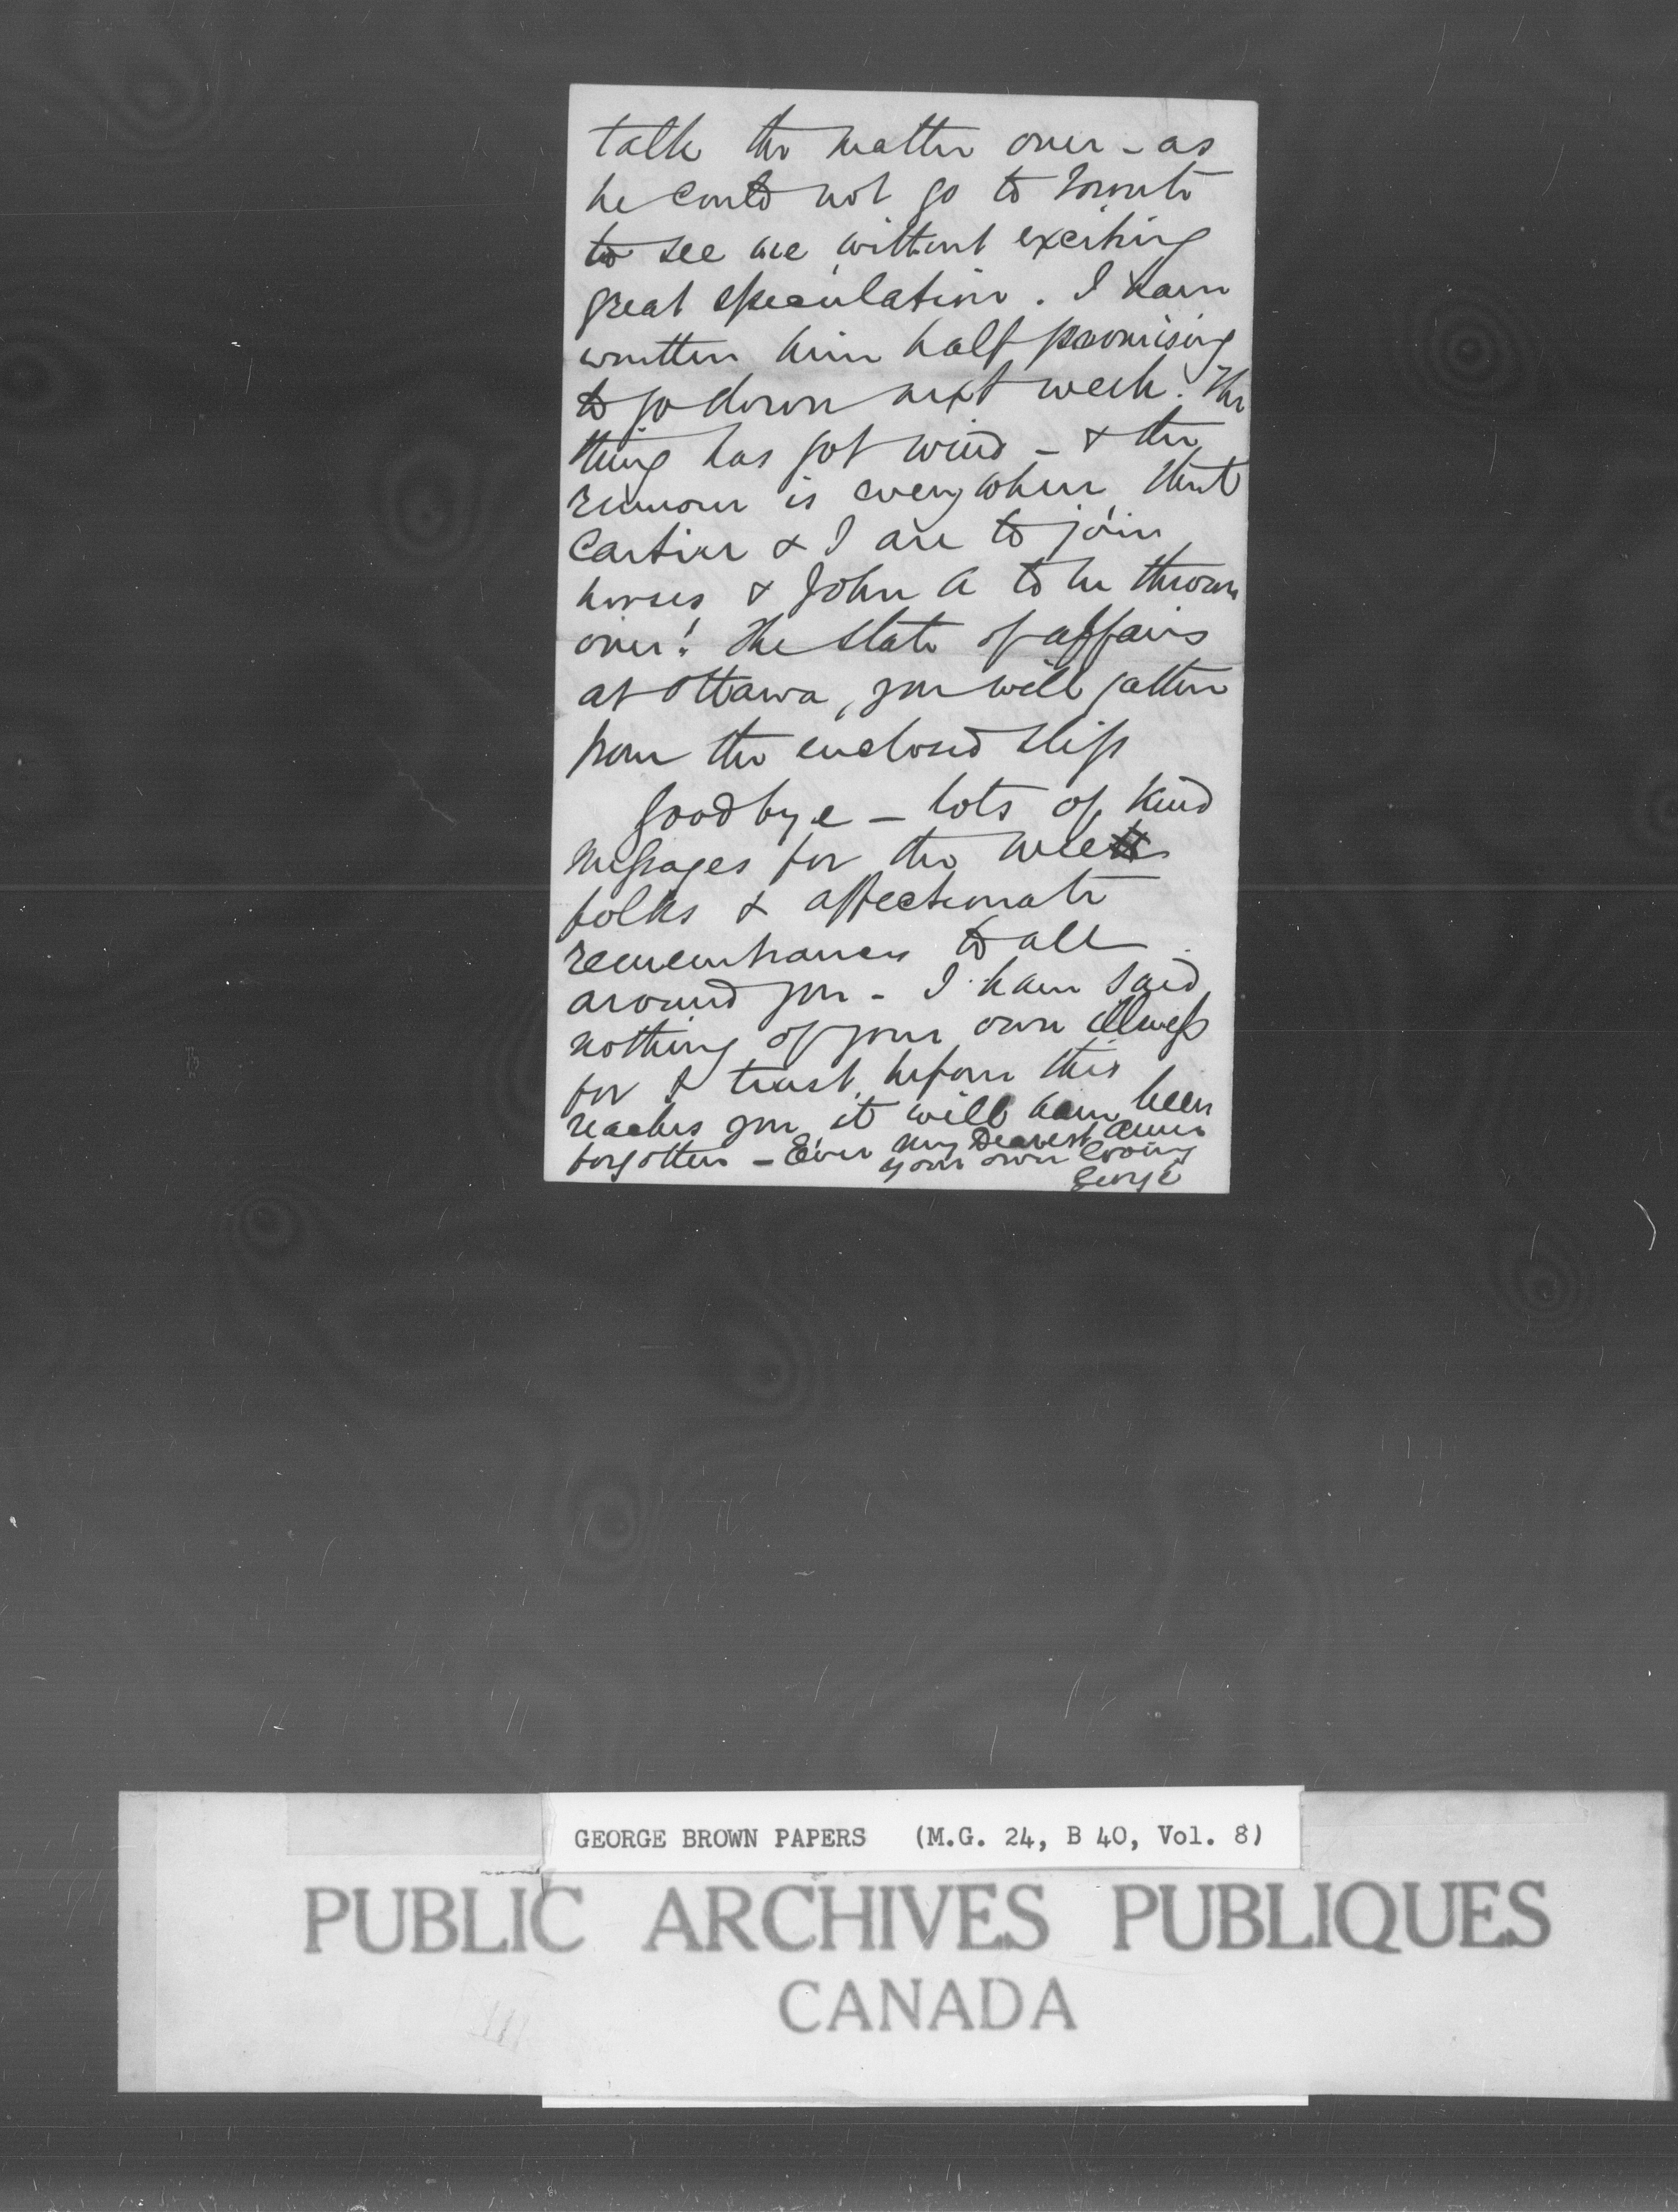 talk the matter over - as
he could not go to Toronto
to see me without exciting
great speculation. I have
written him half promising
to go down next week. The
thing has got wind - & the
rumour is everywhere that
Cartier & I are to join
horses & John A to be thrown
over! The state of affairs
at Ottawa, you will gather
from the enclosed slip
Goodbye - lots of kind
messages for the wee
folks & affectionate
remembrances to all
around you - I have said
nothing of your own illness
for I trust before this
reaches you it will have been
forgotten - Ever my Dearest Anne
your own loving
George
GEORGE BROWN PAPERS (M.G. 24, B 40, Vol. 8)
PUBLIC ARCHIVES PUBLIQUES
CANADA